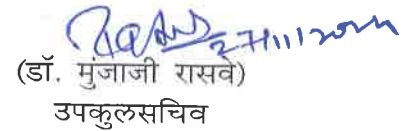 27/11/2024
(डॉ. मुंजाजी रासवे)
उपकुलसचिव